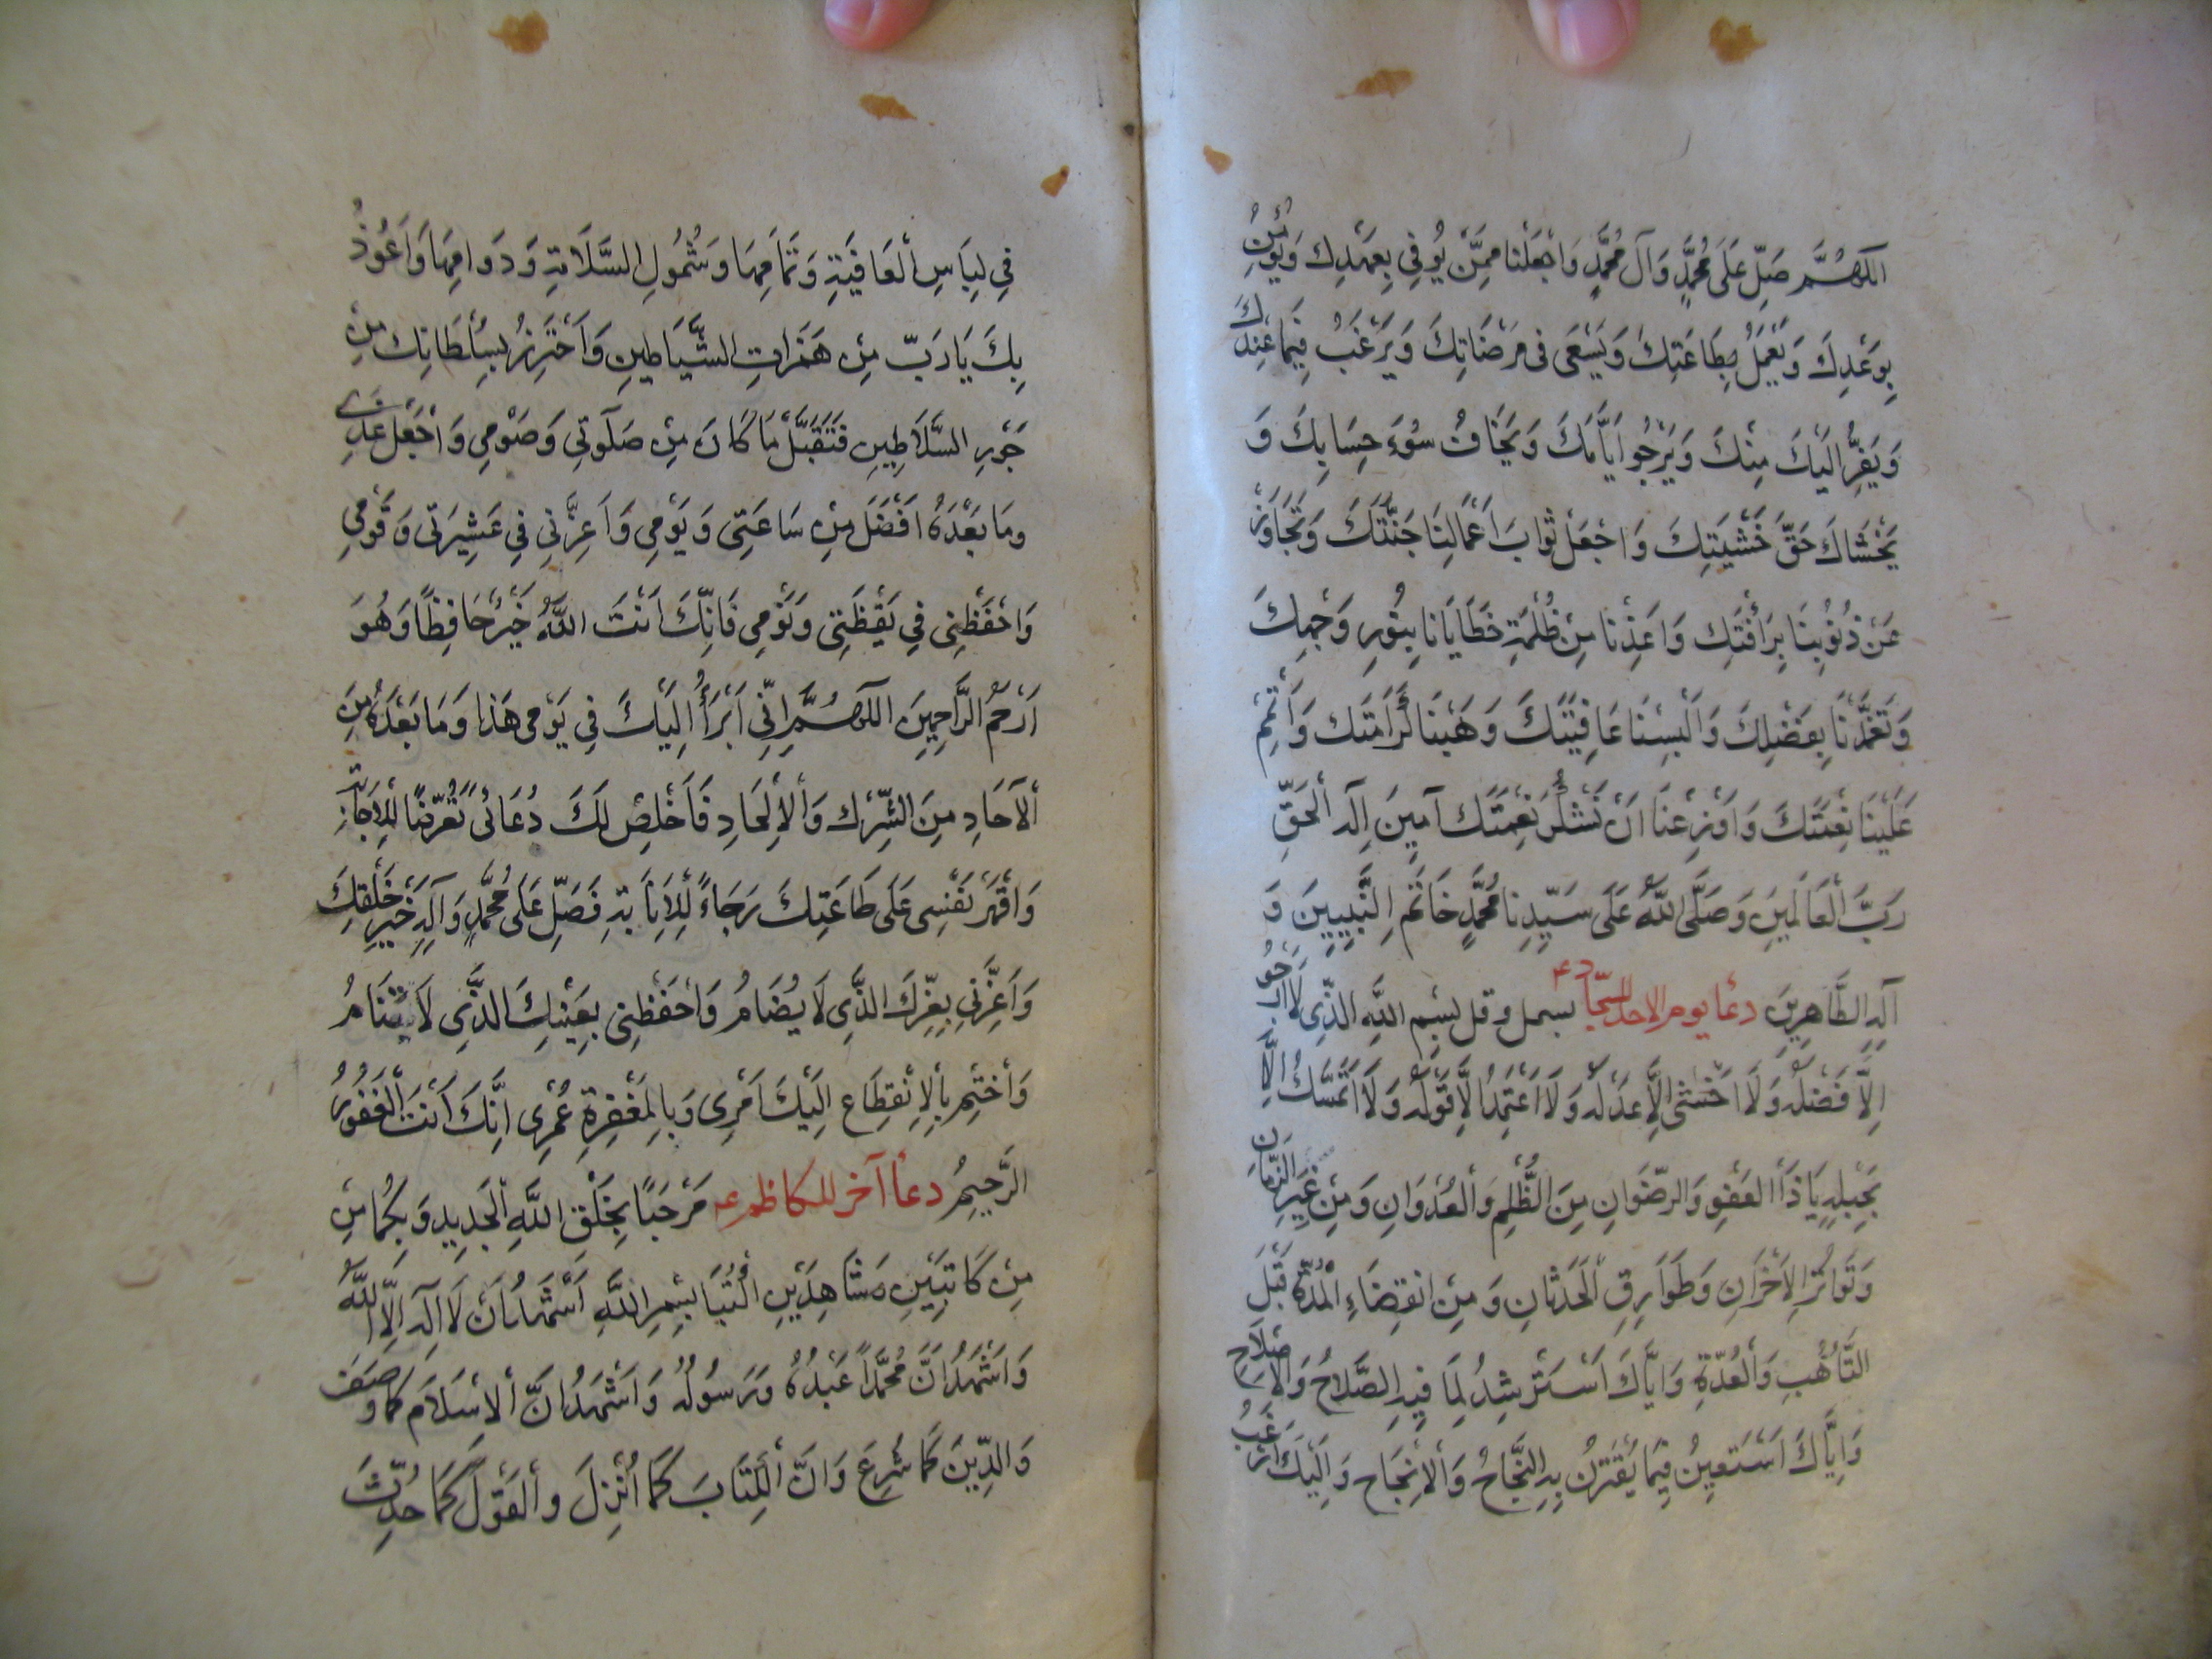 اَللّهُمَّ صَلِّ عَلَى مُحَمَّدٍ وَآلِ مُحَمَّدٍ وَاجْعَلْنا مِمَّنْ يُوفِي بِعَهْدِك وَيُؤْمِنُ
بِوَعْدِكَ وَيَعْمَلُ بِطَاعَتِكَ وَيَسْعَى فى مَرْضَاتِكَ وَيَرْغَبُ فِيمَا عِنْدَكَ
وَيَفِرُّ اِلَيْكَ مِنْكَ وَيَرْجُوا اَيَّامَكَ وَيَخَافُ سُوءَ حِسَابِكَ وَ
يَخْشَاكَ حَقَّ خَشْيَتِكَ وَاجْعَلْ ثَوابَ اَعْمَالِنَا جَنَّتَكَ وَتَجَاوَزْ
عَنْ ذُنُوبِنَا بِرَأْفَتِكَ وَاَعِذْنَا مِنْ ظُلْمَةِ خَطَايَانَا بِنُورِ وَجْهِكَ
وَتَغَمَّدْنَا بِفَضْلِكَ وَاَلْبِسْنَا عَافِيَتَكَ وَهَنِّئْنَا كَرَامَتَك وَأَتْمِمْ
عَلَيْنَا نِعْمَتَكَ وَاَوْزِعْنَا اَنْ نَشْكُرَ نِعْمَتَك آمِينَ اِلهَ اْلحَقِّ
رَبَّ اْلعَالَمِينَ وَصَلَّى اللَّهُ عَلَى سَيِّدِنَا مُحَمَّدٍ خَاتَمِ النَّبِيِينَ وَ
آلِهِ الطَّاهِرِينَ دعا يوم الاحد للسجّاد ع بسمل وقل بِسْمِ اللَّهِ الذِّى لَا اَرْجُو
اِلَّا فَضْلَهُ وَلَا اَخْشى اِلَّا عَدْلَهُ وَلَا اَعْتَمِدُ اِلَّا قَوْلَهُ وَلَا اَتَمَسَّكُ اِلَّا
بِحَبْلِهِ يَا ذَا العَفْوِ وَالرِّضْوَانِ مِنَ الظُّلْمِ وَاْلعُدْوَانِ وَمِنْ غِيَرِ الزَّمَانِ
وَتَوَاتُرِ الاَحْزَانِ وَطَوَارِقِ اْلحَدَثَانِ وَمِنِ انْقِضَاءِ اْلمُدَّةِ قَبْلَ
التَّأَهُّبِ وَاْلعُدَّةِ وَاِيَّاكَ اَسْتَرْشِدُ لِمَا فِيهِ الصَّلَاحُ وَالاِصْلَاحُ
وَاِيَّاكَ اَسْتَعِينُ فِيمَا يَقْتَرِنُ بِهِ النَّجَاحُ وَاْلاِنْجَاحِ وَاِلَيْكَ اَرْغَبُ
فِي لِبَاسِ اْلعَافِيَةِ وَتَمَامِهَا وَشُمُولِ السَّلَامَةِ وَدَوامِهَا وَاَعُوذُ
بِكَ يَا رَبّ مِنْ هَمَزَاتِ الشَّيَاطِينِ وَاَحْتَرِزُ بِسُلْطَانِك مِنْ
جَوْرِ السَّلَاطِينِ فَتَقَبَّلْ مَا كَانَ مِنْ صَلَوتِي وَصَوْمِي وَاجْعَلْ غَدِي
وَمَا بَعْدَهُ اَفْضَلَ مِنْ سَاعَتِى وَيَوْمِي وَاَعِزَّنِي فِي عَشِيرَتِى وَقَوْمِي
وَاحْفَظْنِى فِي يَقْظَتِى وَنَوْمِي فَاِنَّكَ اَنْتَ اللَّهُ خَيْرٌ حَافِظًا وَهُوَ
اَرْحَمُ الرَّاحِمِينَ اَللّهُمَّ اِنِّى اَبْرَأُ اِلَيْكَ فِي يَوْمى هَذا وَمَا بَعْدَهُ مِنَ
اْلآحَادِ مِنَ الشِّرْك وَاْلاِلْحَادِ فَاَخْلِصُ لَكَ دُعَائى تَعَرُّضًا لِلْاِجَابَةِ
وَاَقْهَرُ نَفْسِى عَلَى طَاعَتِكَ رَجَاءً لِلْاِثَابَةِ فَصَلِّ عَلَى مُحَمَّدٍ وَآلِهِ خَيْرِ خَلْقِكَ
وَاَعِزَّنِى بِعِزِّكَ الذَّى لَا يُضَامُ وَاحْفَظْنِى بِعَيْنِكَ الذَّى لَا تَنَامُ
وَاْخْتِمْ بِاْلاِنْقِطَاعِ اِلَيْكَ اَمْرِى وَبِالمَغْفِرَةِ عُمْرِى اِنَّكَ اَنْتَ اْلغَفُورُ
الرَّحِيمُ دعا آخر للكاظم ع مَرْحَبًا بِخَلْقِ اللَّهِ اْلجَدِيدِ وَبِكُمَا مِنْ
مِنْ كَاتِبَيْنِ وَشَاهِدَيْنِ اكْتُبَا بِسْمِ اللَّهِ اَشْهَدُ اَنْ لَا اِلَهَ اِلَّا اللَّهُ
وَاَشْهَدُ اَنَّ مُحَمَّدًا عَبْدُهُ وَرَسُولُهُ وَاَشْهَدُ اَنَّ اْلاِسْلَامَ كَمَا وَصَفَ
وَالدِّينَ كَمَا شُرِعَ وَاَنَّ اْلكِتَابَ كَمَا اُنْزِلَ وَاْلقَوْلَ كَمَا حُدِّثَ